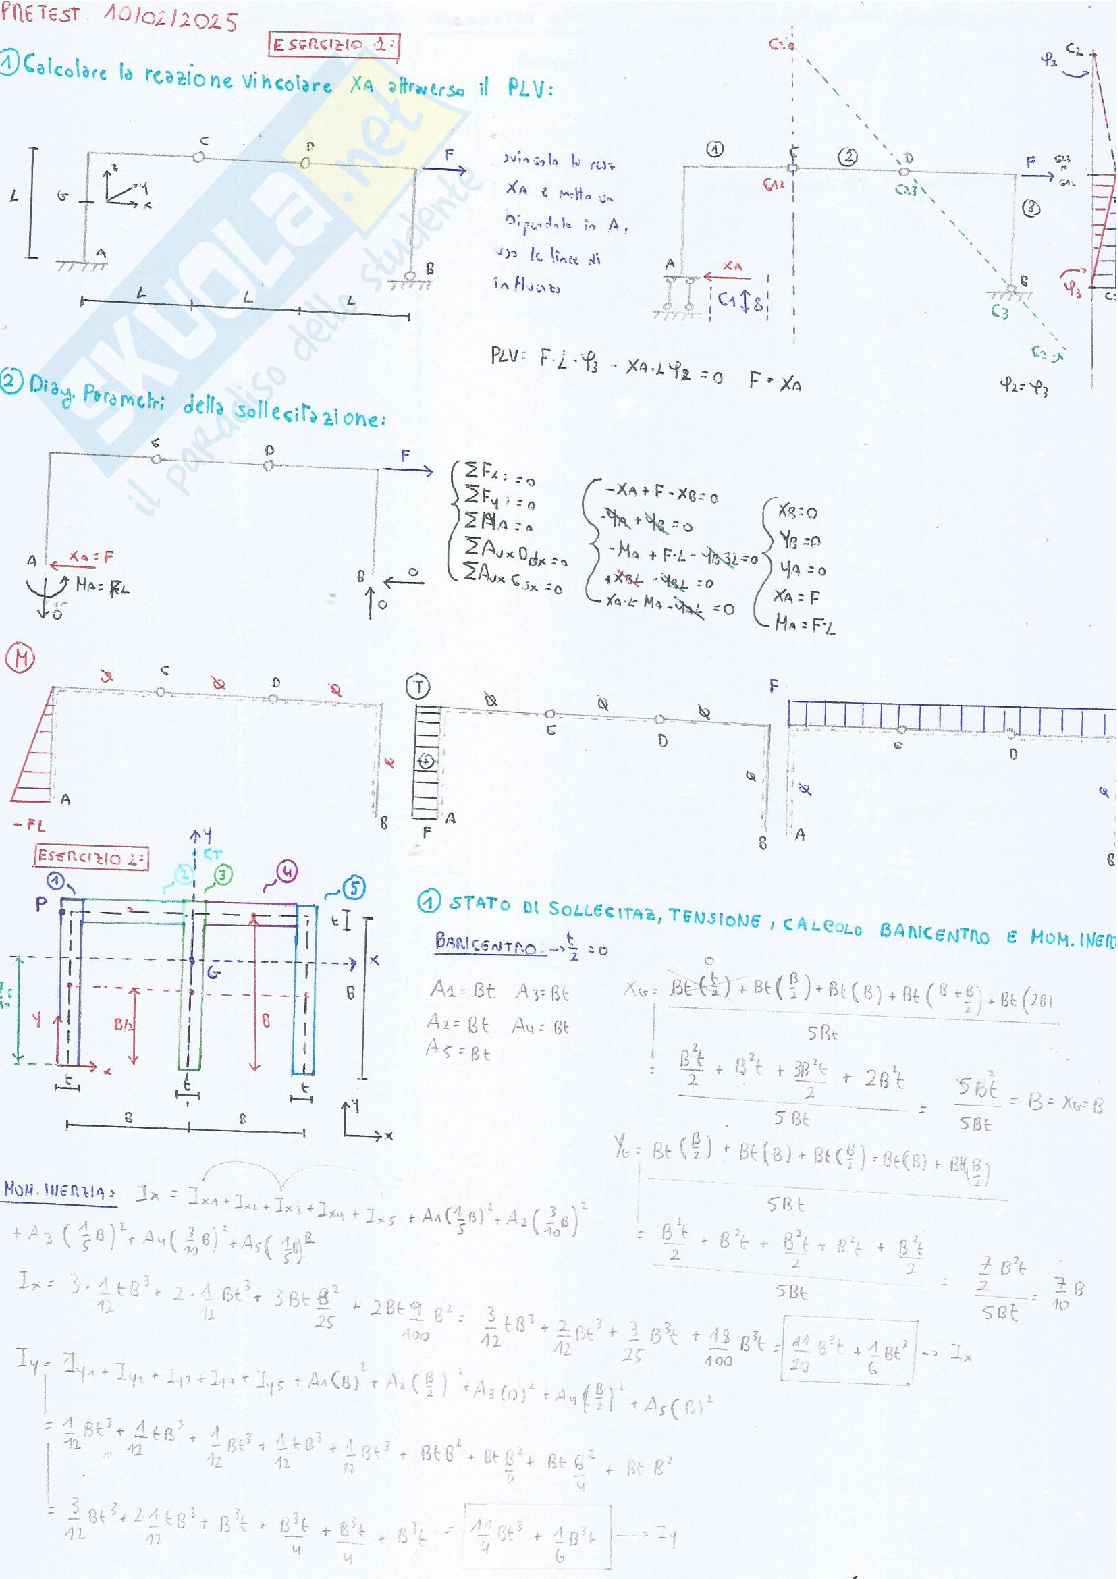 PRETEST 10/02/2025
ESERCIZIO 1:
① Calcolare la reazione vincolare XA attraverso il PLV:
svincolo la reaz
XA e metto un
bipendolo in A,
uso le linee di
influenza
PLV: F·L·φ3 - XA·L φ2 = 0 F = XA
φ2 = φ3
② Diag. Parametri della sollecitazione:
XA = F
MA = FL
ΣFxi = 0
ΣFyi = 0
ΣMA = 0
ΣAux Ddx = 0
ΣAux Csx = 0
-XA + F - XB = 0
-YA + YB = 0
-MA + F·L - YB3L = 0
+XBL - YBL = 0
XA·L - MA - YAL = 0
XB = 0
YB = 0
YA = 0
XA = F
MA = F·L
M
T
- FL
ESERCIZIO 2:
① STATO DI SOLLECITAZ, TENSIONE, CALCOLO BARICENTRO E MOM. INER
BARICENTRO → t/2 = 0
A1 = Bt A3 = Bt
A2 = Bt A4 = Bt
A5 = Bt
XG = Bt(t/2) + Bt(B/2) + Bt(B) + Bt(B + B/2) + Bt(2B)
5Bt
= B²t/2 + B²t + 3B²t/2 + 2B²t
5Bt
= 5B²t/5Bt = B = XG = B
YG = Bt(B/2) + Bt(B) + Bt(B/2) + Bt(B) + Bt(B/2)
5Bt
= B²t/2 + B²t + B²t/2 + B²t + B²t/2
5Bt
= 7/2 B²t/5Bt = 7/10 B
MOM. INERZIA: Ix = Ix1 + Ix2 + Ix3 + Ix4 + Ix5 + A1(1/5 B)² + A2(3/10 B)²
+ A3(1/5 B)² + A4(3/10 B)² + A5(1/5 B)²
Ix = 3·1/12 tB³ + 2·1/12 Bt³ + 3Bt B²/25 + 2Bt 9/100 B² = 3/12 tB³ + 2/12 Bt³ + 3/25 B³t + 18/100 B³t = 11/20 B³t + 1/6 Bt³ → Ix
Iy = Iy1 + Iy2 + Iy3 + Iy4 + Iy5 + A1(B)² + A2(B/2)² + A3(0)² + A4(B/2)² + A5(B)²
= 1/12 Bt³ + 1/12 tB³ + 1/12 Bt³ + 1/12 tB³ + 1/12 Bt³ + BtB² + Bt B²/4 + Bt B²/4 + Bt B²
= 3/12 Bt³ + 2 1/12 tB³ + B³t + B³t/4 + B³t/4 + B³t = 11/4 Bt³ + 1/6 B³t → Iy
SKUOLA.net
il paradiso dello studente